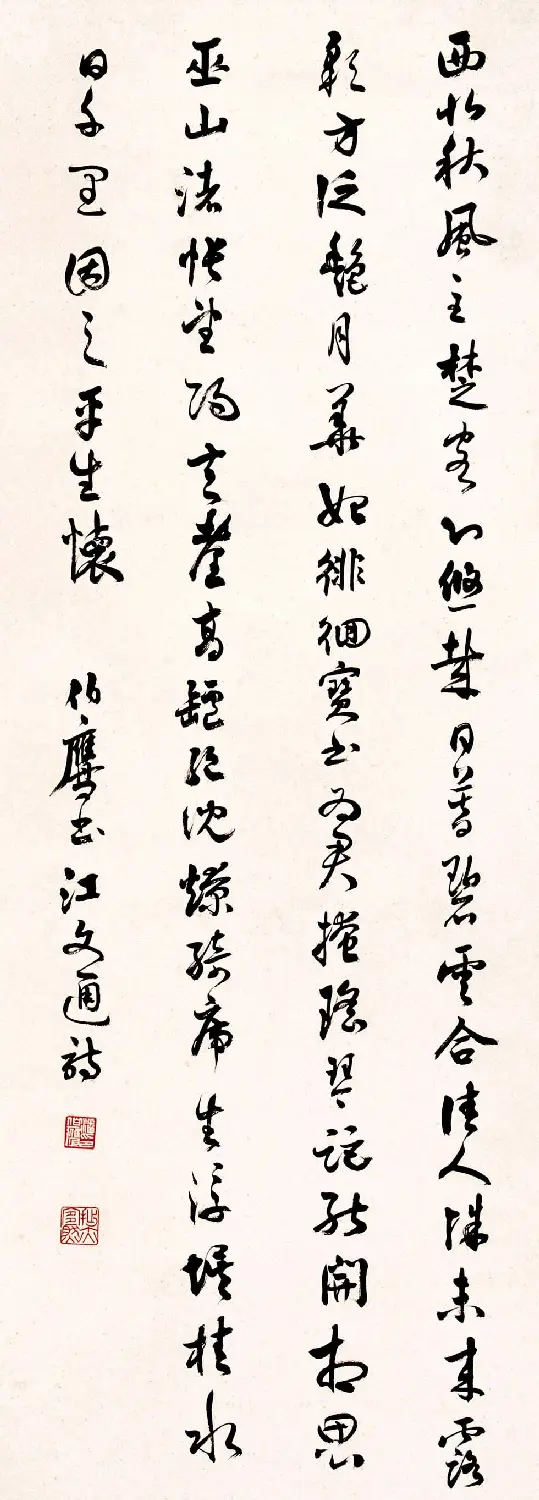 西北秋風至楚客心悠哉日暮碧雲合佳人殊未來露
彩方泛艷月華始徘徊寶書為君掩瑤琴詎能開相思
巫山渚悵望陽雲臺膏罏絕沈燎綺席生浮埃桂水
日千里因之平生懷
伯鷹書江文通詩